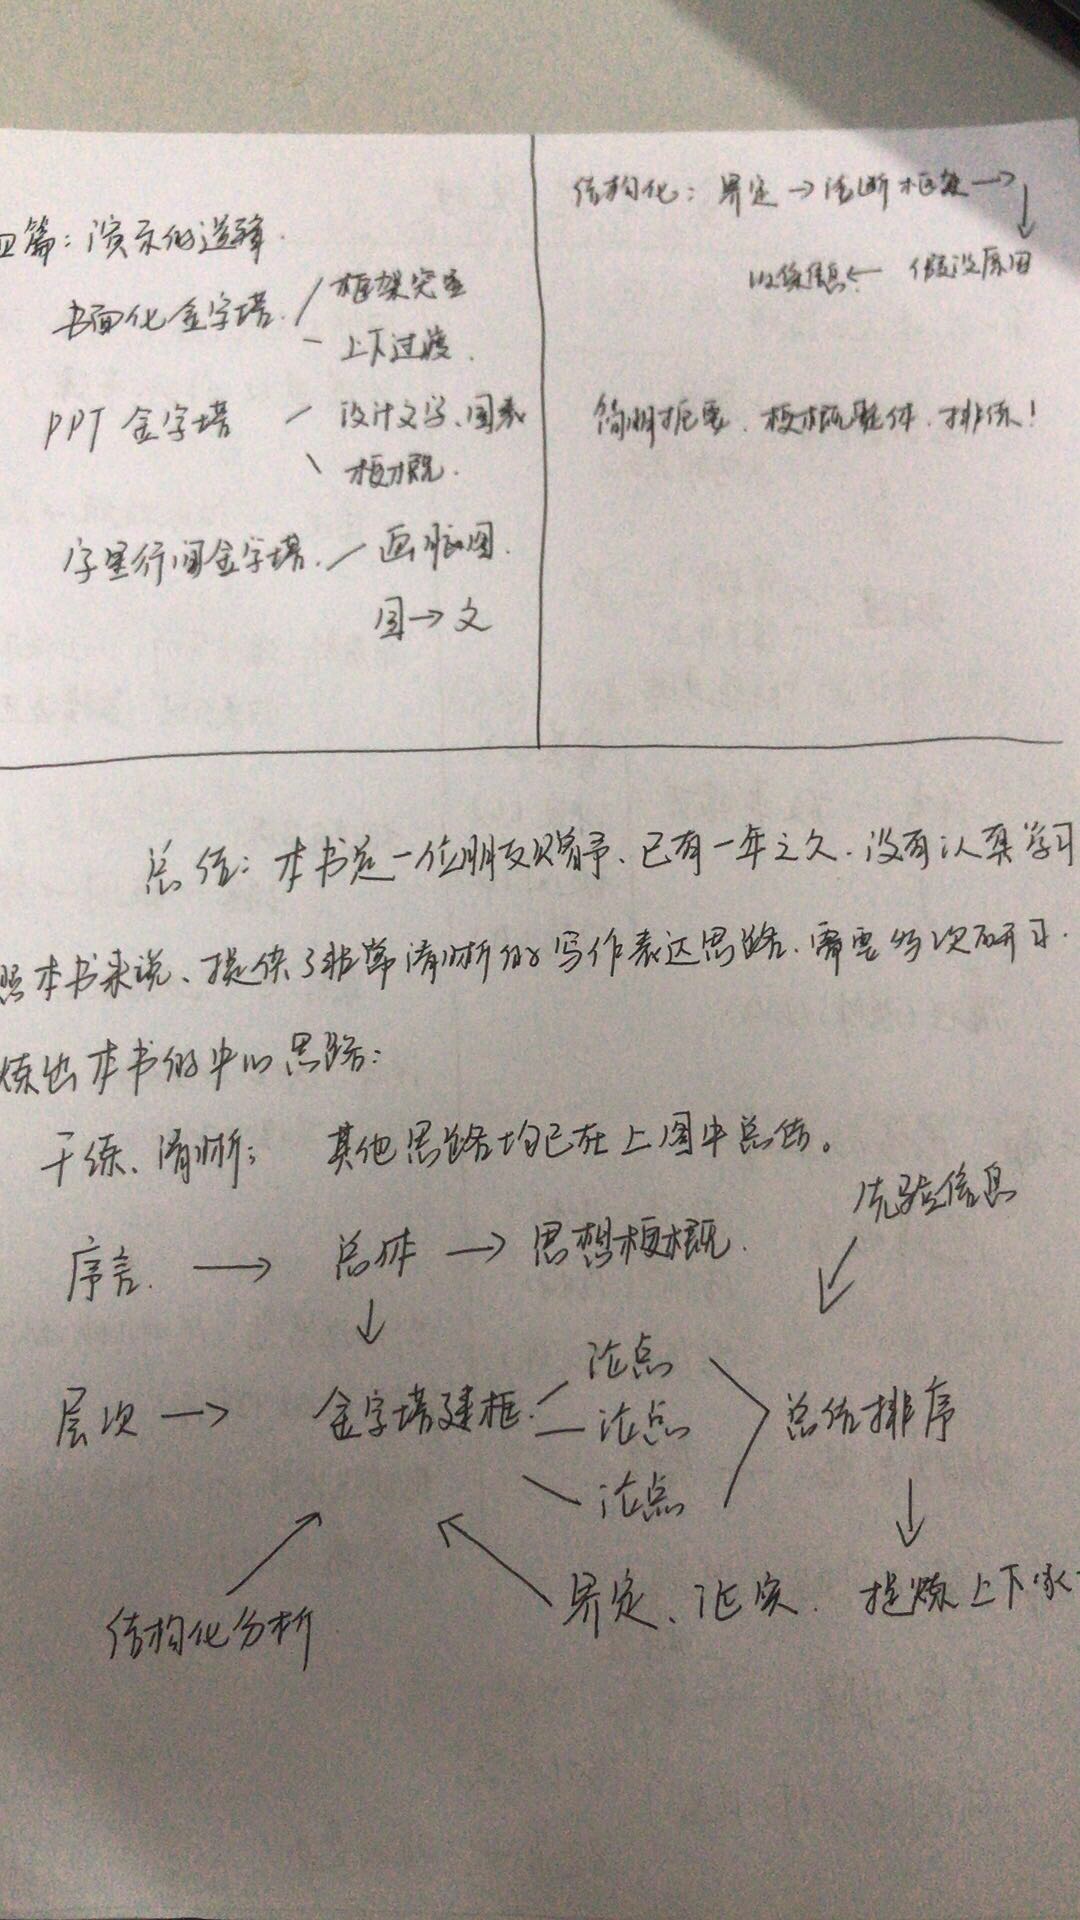 篇：演示的逻辑.
书面化金字塔. 框架完全
上下过渡.
PPT 金字塔 设计文字、图表
梗概.
字里行间金字塔. 画脑图.
图→文
结构化：界定→诊断框架→
收集信息← 假设原因
简明扼要、梗概整体、排练！
总结：本书是一位朋友赠予、已有一年之久.没有认真学习
照本书来说、提供了非常清晰的写作表达思路、需要多次研习.
炼出本书的中心思路：
干练、清晰； 其他思路均已在上图中总结。
先验信息
序言. → 总体 → 思想梗概.
↓
层次 → 金字塔建框. 论点 论点 论点 总结排序
↓
结构化分析 界定、证实. 提炼上下